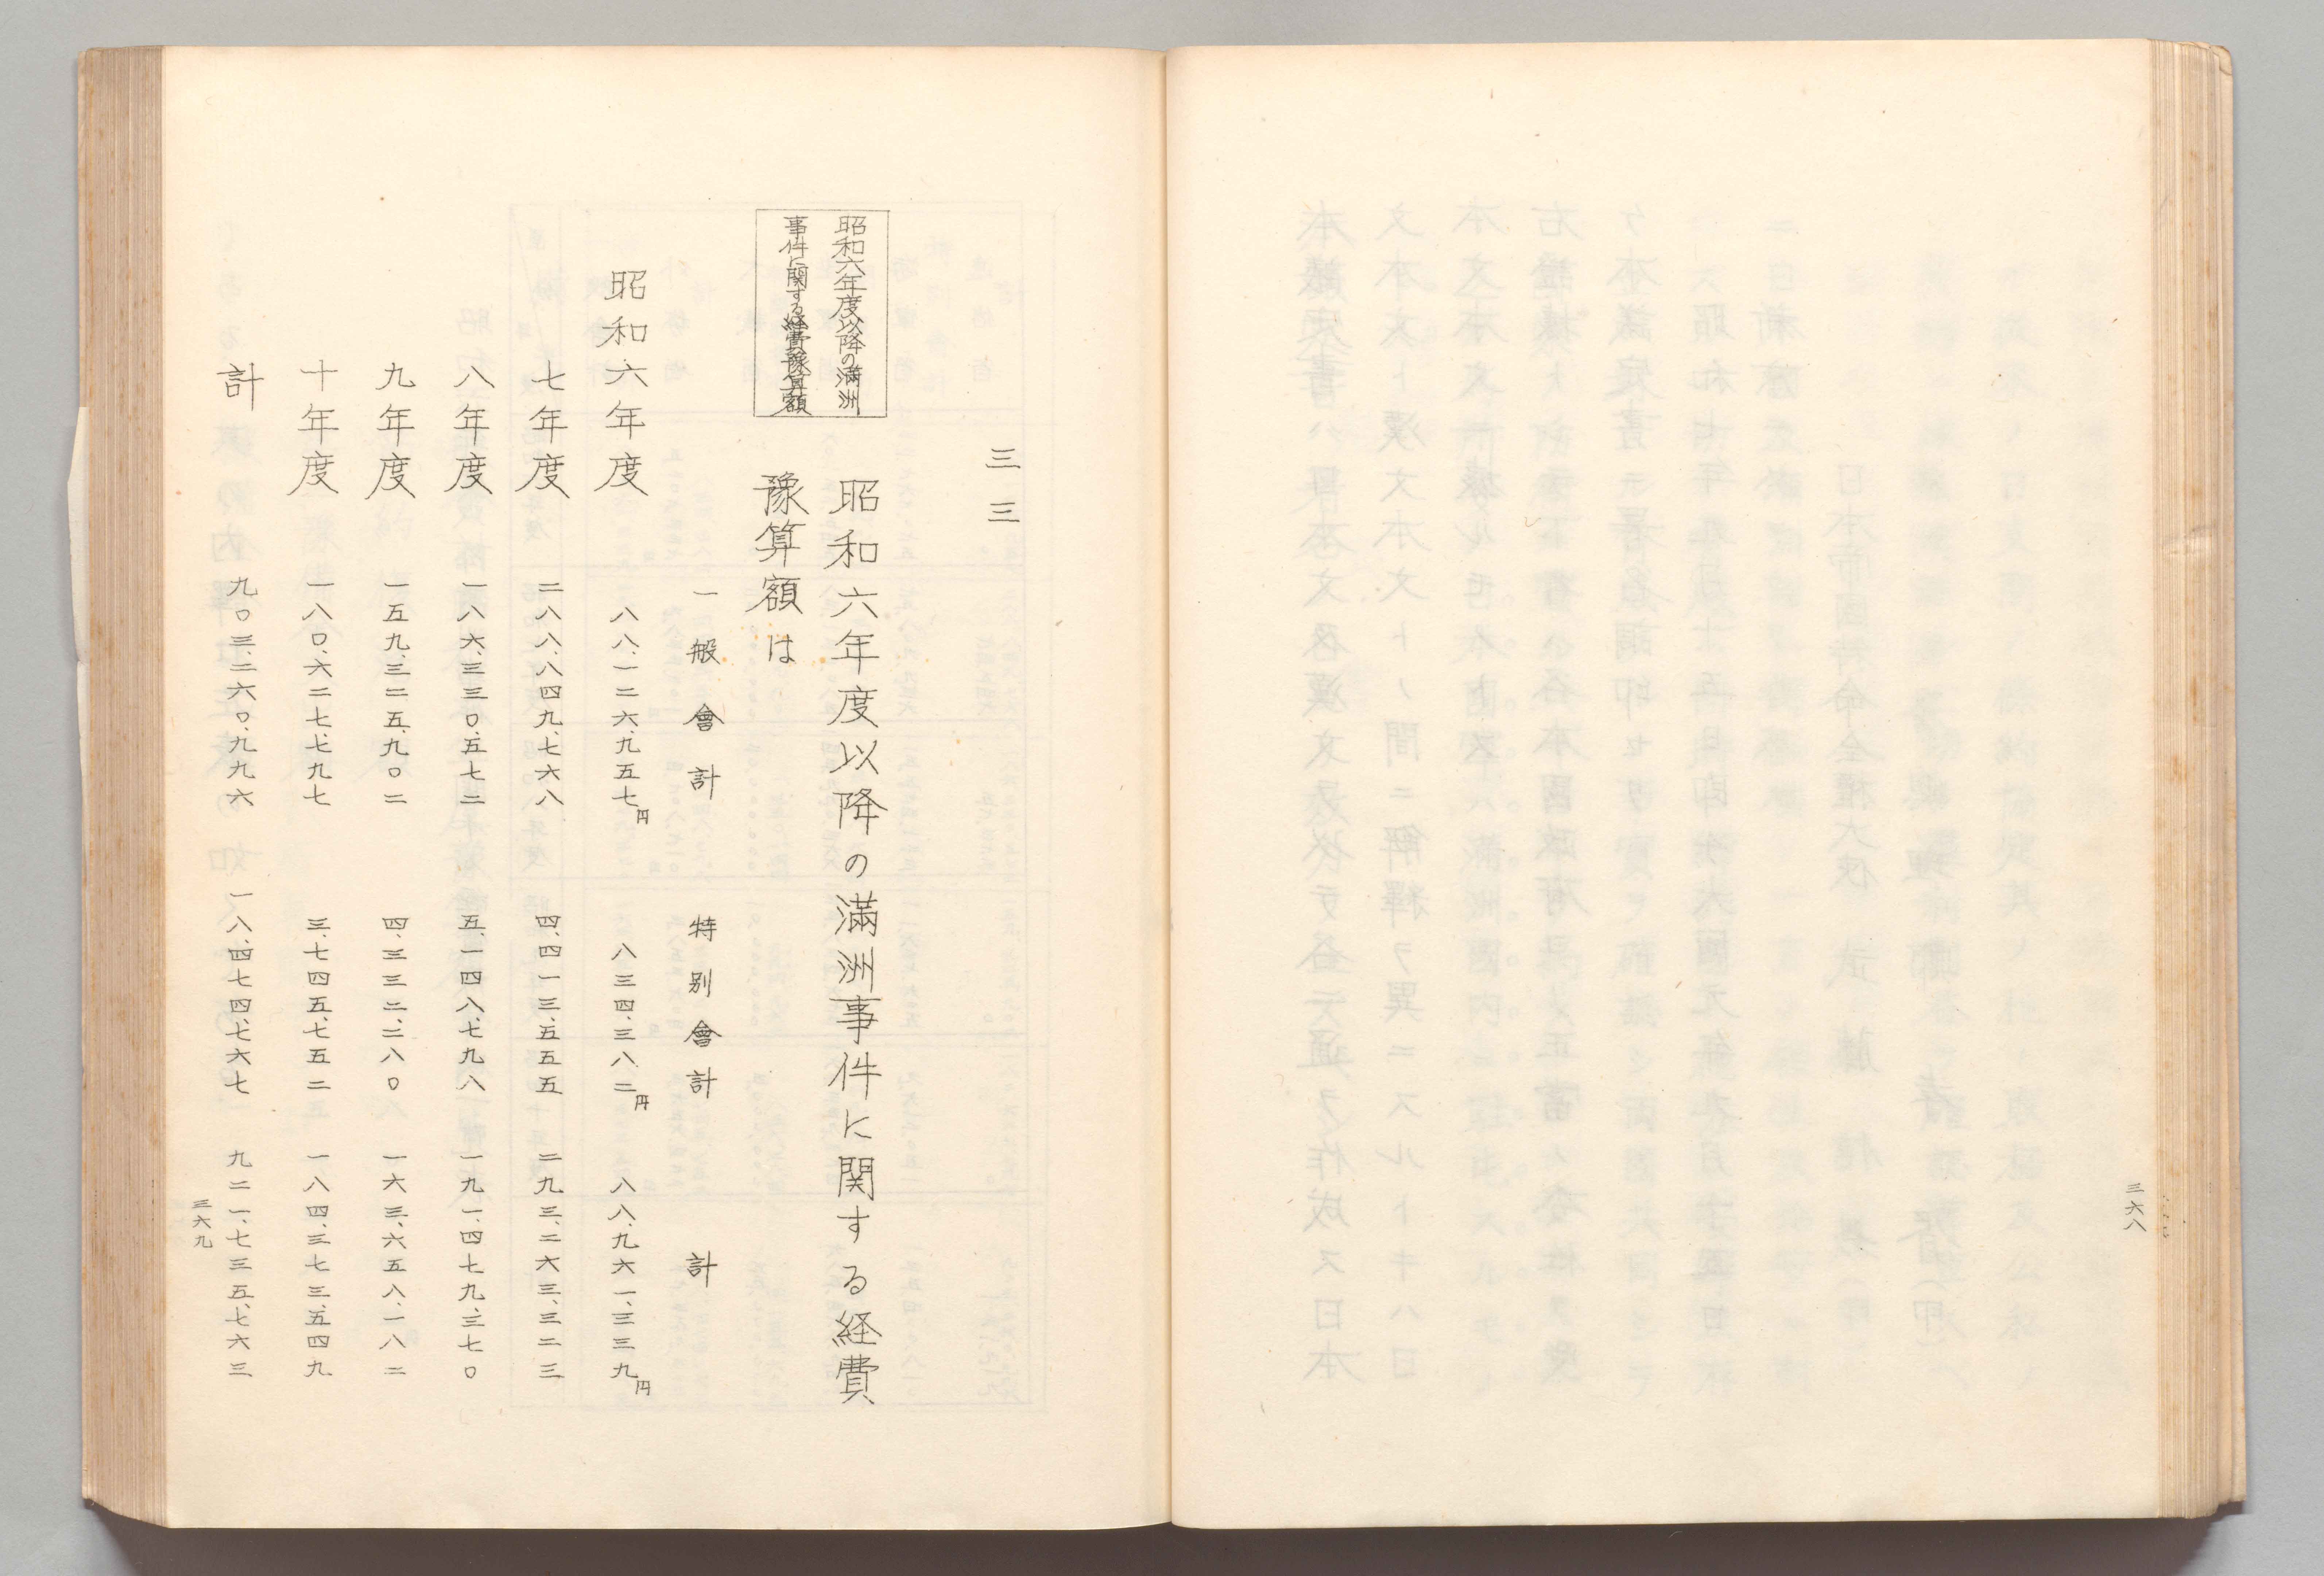 三六八
三三
昭和六年度以降の満洲
事件に関する経費豫算額
昭和六年度以降の滿洲事件に関する経費
豫算額は
一般會計 特別會計 計
昭和六年度 八八、一二六、九五七円 八三四、三八二円 八八、九六一、三三九円
七年度 二八八、八四九、七六八 四、四一三、五五五 二九三、二六三、三二三
八年度 一八六、三三〇、五七二 五、一四八、七九八 一九一、四七九、三七〇
九年度 一五九、三二五、九〇二 四、三三二、二八〇 一六三、六五八、一八二
十年度 一八〇、六二七、七九七 三、七四五、七五二 一八四、三七三、五四九
計 九〇三、二六〇、九九六 一八、四七四、七六七 九二一、七三五、七六三
三六九